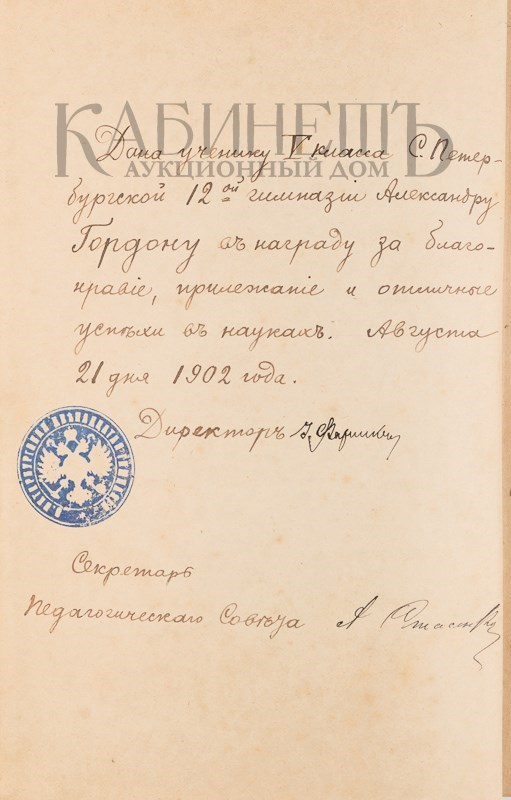 КАБИНЕТЪ
АУКЦИОННЫЙ ДОМ
Дана ученику V класса С. Петер-
бургской 12ой гимназiи Александру
Гордону въ награду за благо-
нравiе, прилежанiе и отличные
успѣхи въ наукахъ. Августа
21 дня 1902 года.
Директоръ
Секретарь
Педагогическаго Совѣта А